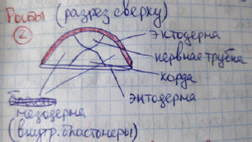 Рыбы (разрез сверху)
2
эктодерма
нервная трубка
хорда
энтодерма
мезодерма
(внутр. бластомеры)